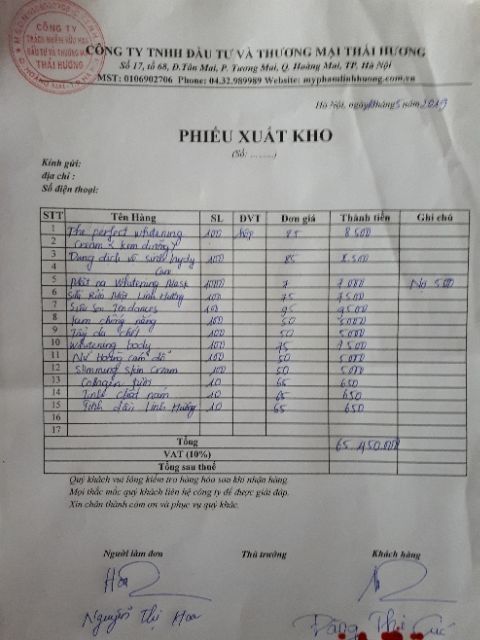 CÔNG TY
TRÁCH NHIỆM HỮU HẠN
ĐẦU TƯ VÀ THƯƠNG MẠI
THÁI HƯƠNG
CÔNG TY TNHH ĐẦU TƯ VÀ THƯƠNG MẠI THÁI HƯƠNG
Số 17, tổ 68, Đ.Tân Mai, P. Tương Mai, Q. Hoàng Mai, TP. Hà Nội
MST: 0106902706 Phone: 04.32.989989 Website: myphamlinhhuong.com.vn
Hà Nội, ngày tháng 5 năm 2019
PHIẾU XUẤT KHO
(Số: .........)
Kính gửi:
địa chỉ :
Số điện thoại:
STT Tên Hàng SL ĐVT Đơn giá Thành tiền Ghi chú
1 The perfect whitening 100 hộp 85 8500
2 Cream x kem dưỡng
3 Dung dịch vệ sinh 100 85 8.500
4 Care
5 Mặt nạ Whitening Mask 1000 7 7000 Nợ 500
6 Sữa Rửa Mặt Linh Hương 100 75 7500
7 100 95 9500
8 kem chống nắng 100 50 5000
9 Tẩy da chết 100 50 5000
10 Whitening body 100 75 7500
11 Nước Hoa Hồng 100 50 5000
12 Slimming skin cream 100 50 5000
13 Collagen tươi 10 65 650
14 Tinh chất nám 10 65 650
15 Tinh dầu Linh Hương 10 65 650
16
17
Tổng 65.450.000
VAT (10%)
Tổng sau thuế
Quý khách vui lòng kiểm tra hàng hóa sau khi nhận hàng.
Mọi thắc mắc quý khách liên hệ công ty để được giải đáp.
Xin chân thành cảm ơn và phục vụ quý khác.
Người làm đơn Thủ trưởng Khách hàng
Hoa
Nguyễn Thị Hoa Đặng Thị Cúc